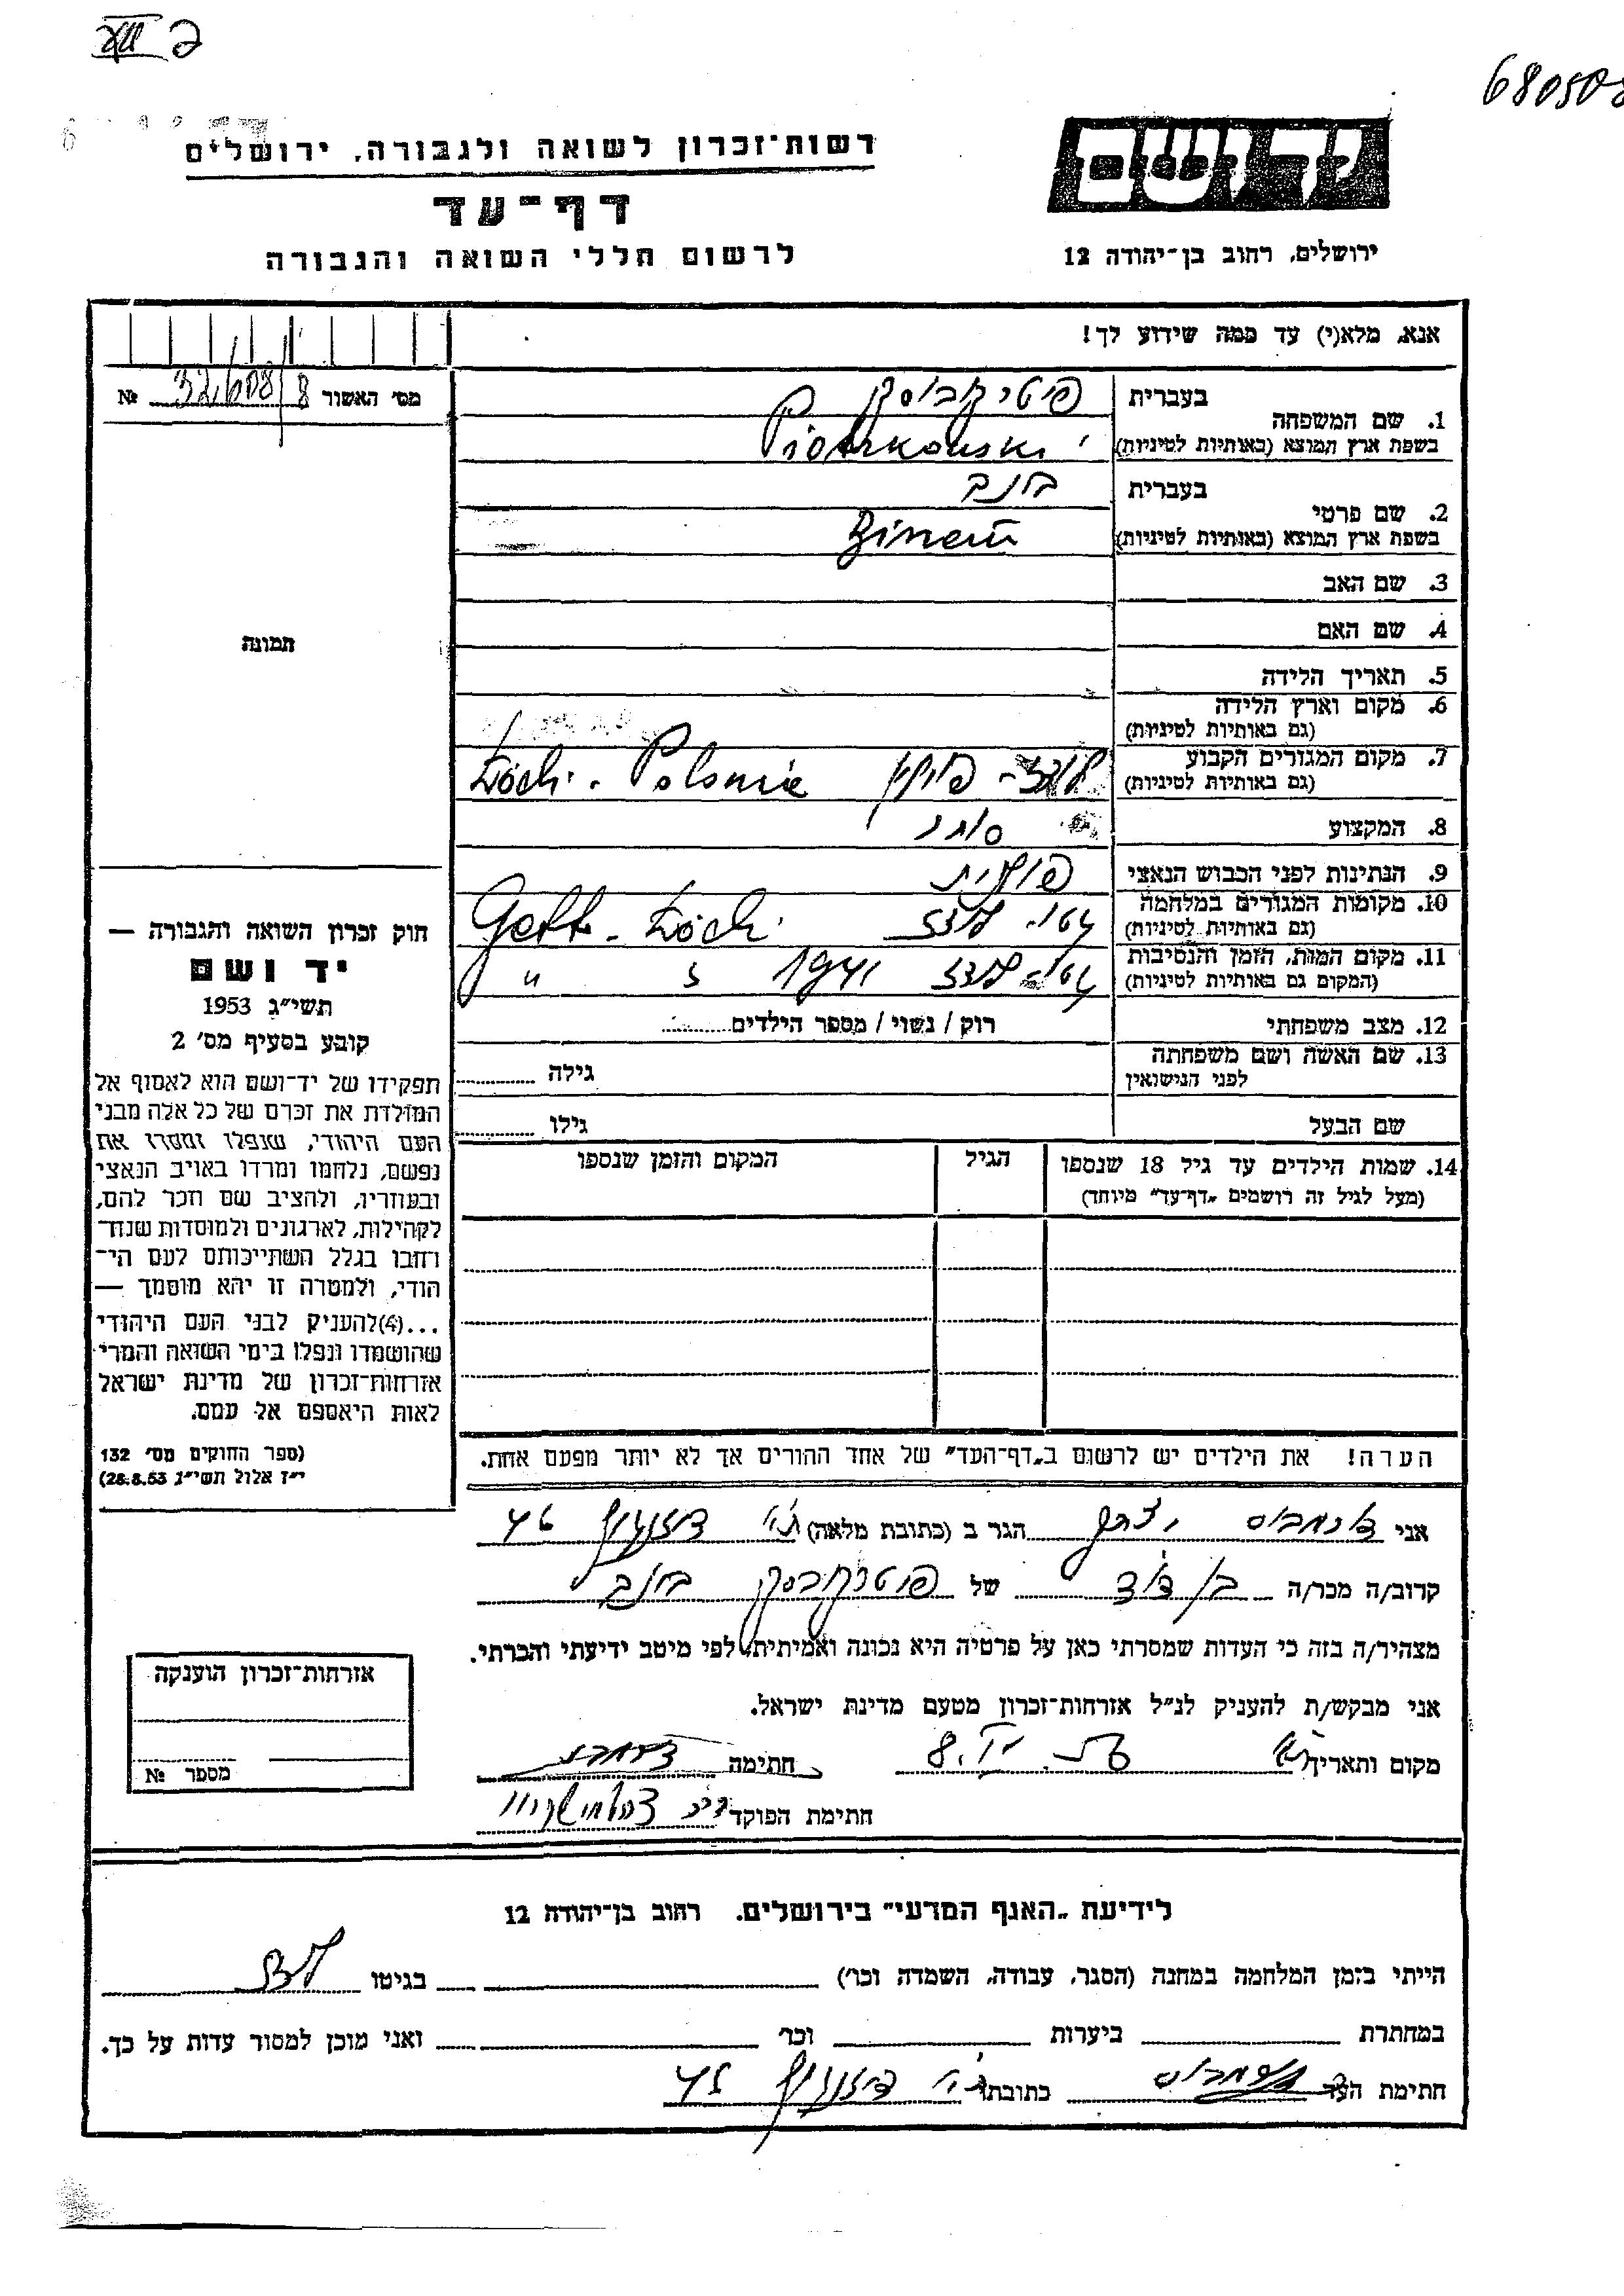 680508
רשות־זכרון לשואה ולגבורה, ירושלים
דף־עד
לרשום חללי השואה והגבורה
יד ושם
ירושלים, רחוב בן־יהודה 12
אנא, מלא(י) עד כמה שידוע לך!
מס׳ האשור № 32,608/8
1. שם המשפחה
בעברית
בשפת ארץ המוצא (באותיות לטיניות) Piotrkowski
2. שם פרטי
בעברית
בשפת ארץ המוצא (באותיות לטיניות)
3. שם האב
4. שם האם
5. תאריך הלידה
6. מקום וארץ הלידה
(גם באותיות לטיניות)
7. מקום המגורים הקבוע לודז - פולין
(גם באותיות לטיניות) Łódź - Polonia
8. המקצוע סוחר
9. הנתינות לפני הכבוש הנאצי פולנית
10. מקומות המגורים במלחמה גטו - לודז
(גם באותיות לטיניות) Gett - Łódź
11. מקום המות, הזמן והנסיבות גטו - לודז 1941
(המקום גם באותיות לטיניות) " "
12. מצב משפחתי רוק / נשוי / מספר הילדים
13. שם האשה ושם משפחתה
לפני הנישואין
גילה
שם הבעל
גילו
14. שמות הילדים עד גיל 18 שנספו
(מעל לגיל זה רושמים „דף־עד״ מיוחד)
הגיל
המקום והזמן שנספו
הערה! את הילדים יש לרשום ב„דף־העד״ של אחד ההורים אך לא יותר מפעם אחת.
תמונה
חוק זכרון השואה והגבורה —
יד ושם
תשי״ג 1953
קובע בסעיף מס׳ 2
תפקידו של יד־ושם הוא לאסוף אל
המולדת את זכרם של כל אלה מבני
העם היהודי, שנפלו ומסרו את
נפשם, נלחמו ומרדו באויב הנאצי
ובעוזריו, ולהציב שם וזכר להם,
לקהילות, לארגונים ולמוסדות שנח־
רחבו בגלל השתייכותם לעם הי־
הודי, ולמטרה זו יהא מוסמך —
...(4)להעניק לבני העם היהודי
שהושמדו ונפלו בימי השואה והמרי
אזרחות־זכרון של מדינת ישראל
לאות היאספם אל עמם.
(ספר החוקים מס׳ 132
י״ז אלול תשי״ג 28.8.53)
אני הגר ב (כתובת מלאה) ת״א דיזנגוף
קרוב/ה מכר/ה בן דוד של
מצהיר/ה בזה כי העדות שמסרתי כאן על פרטיה היא נכונה ואמיתית, לפי מיטב ידיעתי והכרתי.
אני מבקש/ת להעניק לנ״ל אזרחות־זכרון מטעם מדינת ישראל.
מקום ותאריך ת״א
חתימה
חתימת הפוקד
אזרחות־זכרון הוענקה
מספר №
לידיעת „האגף המדעי״ בירושלים, רחוב בן־יהודה 12
הייתי בזמן המלחמה במחנה (הסגר, עבודה, השמדה וכו׳) בגיטו לודז
במחתרת ביערות וכו׳ ואני מוכן למסור עדות על כך.
חתימת העד כתובתו ת״א דיזנגוף